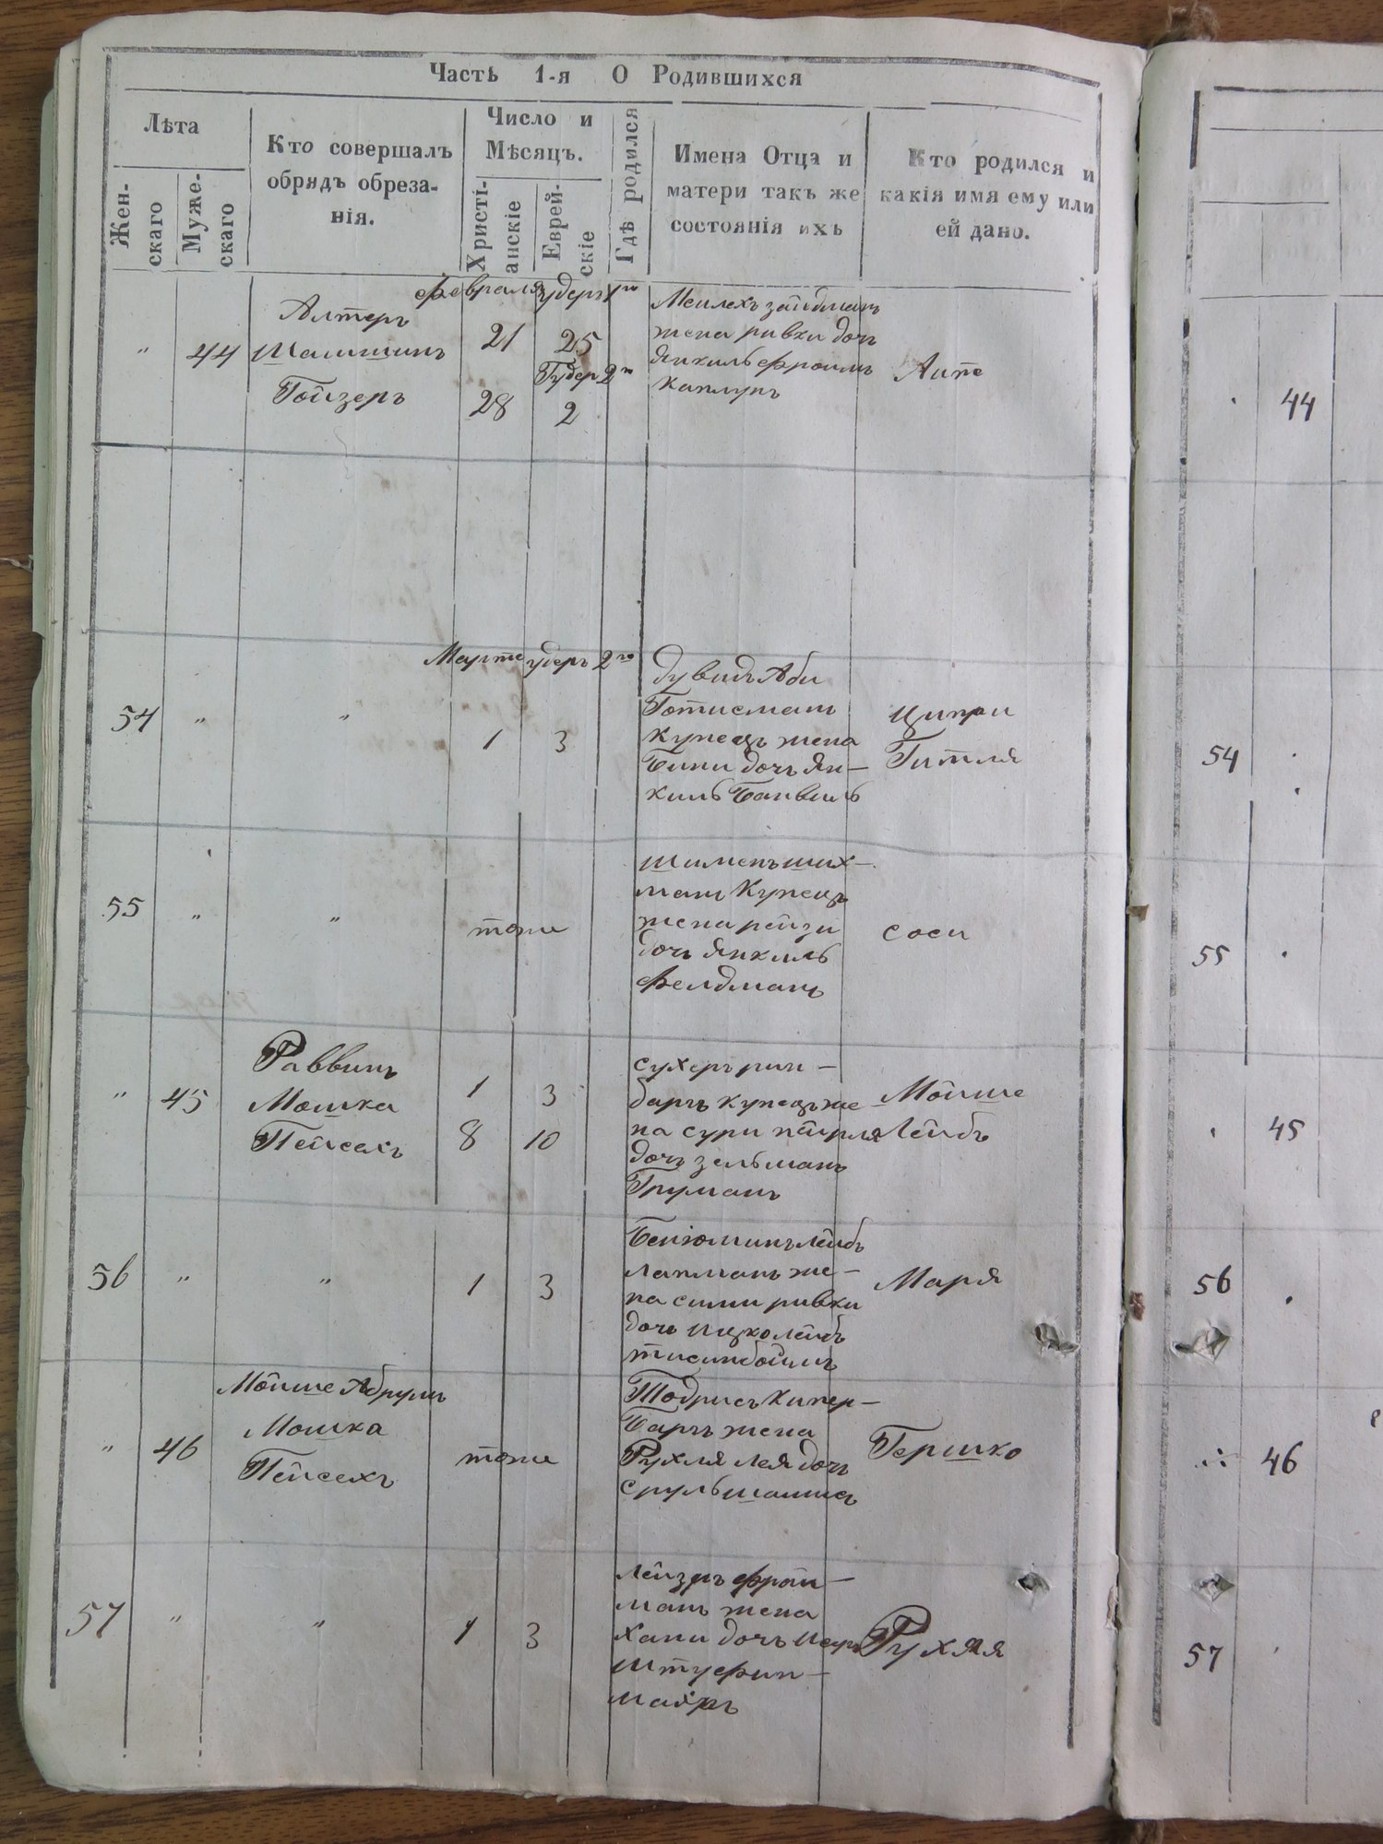 Часть 1-я О Родившихся
Лѣта
Жен-
скаго
Муже-
скаго
Кто совершалъ
обрядъ обреза-
нія.
Число и
Мѣсяцъ.
Христі-
анскіе
Еврей-
скіе
Гдѣ родился
Имена Отца и
матери такъ же
состоянія ихъ
Кто родился и
какія имя ему или
ей дано.
февраля
" 44
Алтеръ
Шапшинъ
Гойзеръ
21 25
2го
28 2
Меилехъ зайдманъ
жена ривки дочь
янкиль фроимъ
каплунъ
44
Марте 2го
54 " "
1 3
дувидъ Аби
Готисманъ
купецъ жена
Бини дочь Ян-
киль Банвиль
Ципри
Гитля
54
55 " "
тоже
шименъ ших-
манъ Купецъ
жена рейзи
дочь янкиль
фелдманъ
соси
55
" 45
Раввинъ
Мошка
Пейсехъ
1 3
8 10
сухеръ рин-
баръ купецъ же
на сури пейрля
дочь зельманъ
Груманъ
Мойше
Лейбъ
45
56 " "
1 3
Бенюминъ лейбъ
лапманъ же-
на сими ривки
дочь ицко лейбъ
Маря
56
" 46
Мойше Абрумъ
Мошка
Пейсехъ
тоже
Тодрисъ Кипер-
Баръ жена
Рухля лея дочь
сруль
Гершко
46
57 " "
1 3
лейзеръ фрои-
манъ жена
хани дочь исеръ
штуфин-
махеръ
Рухля
57